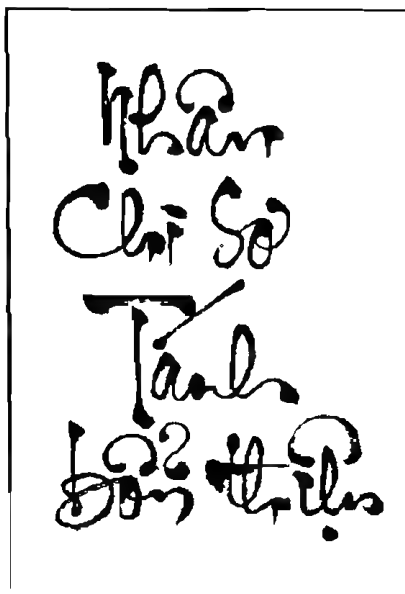 Nhân
Chi Sơ
Tánh
Bổn thiện